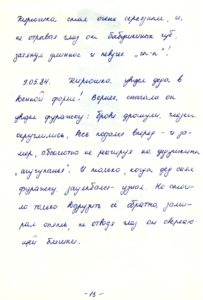 Кирюшка стал очень серьезным, и,
не отрывая глаз от бабушкиных губ,
затянул длинное и певучее „га-а"!
9.05.84. Кирюшка увидел деда в
военной форме! Вернее, сначала он
увидел фуражку: брови дрогнули, глазки
округлились, весь подался вперед - и за-
мер, абсолютно не реагируя на дедушкины
„агушеньки". И только, когда дед снял
фуражку, заулыбался - узнал. Но стоило
только водрузить ее обратно, зами-
рал опять, не отводя глаз от сверкаю-
щей бляшки.
- 13 -